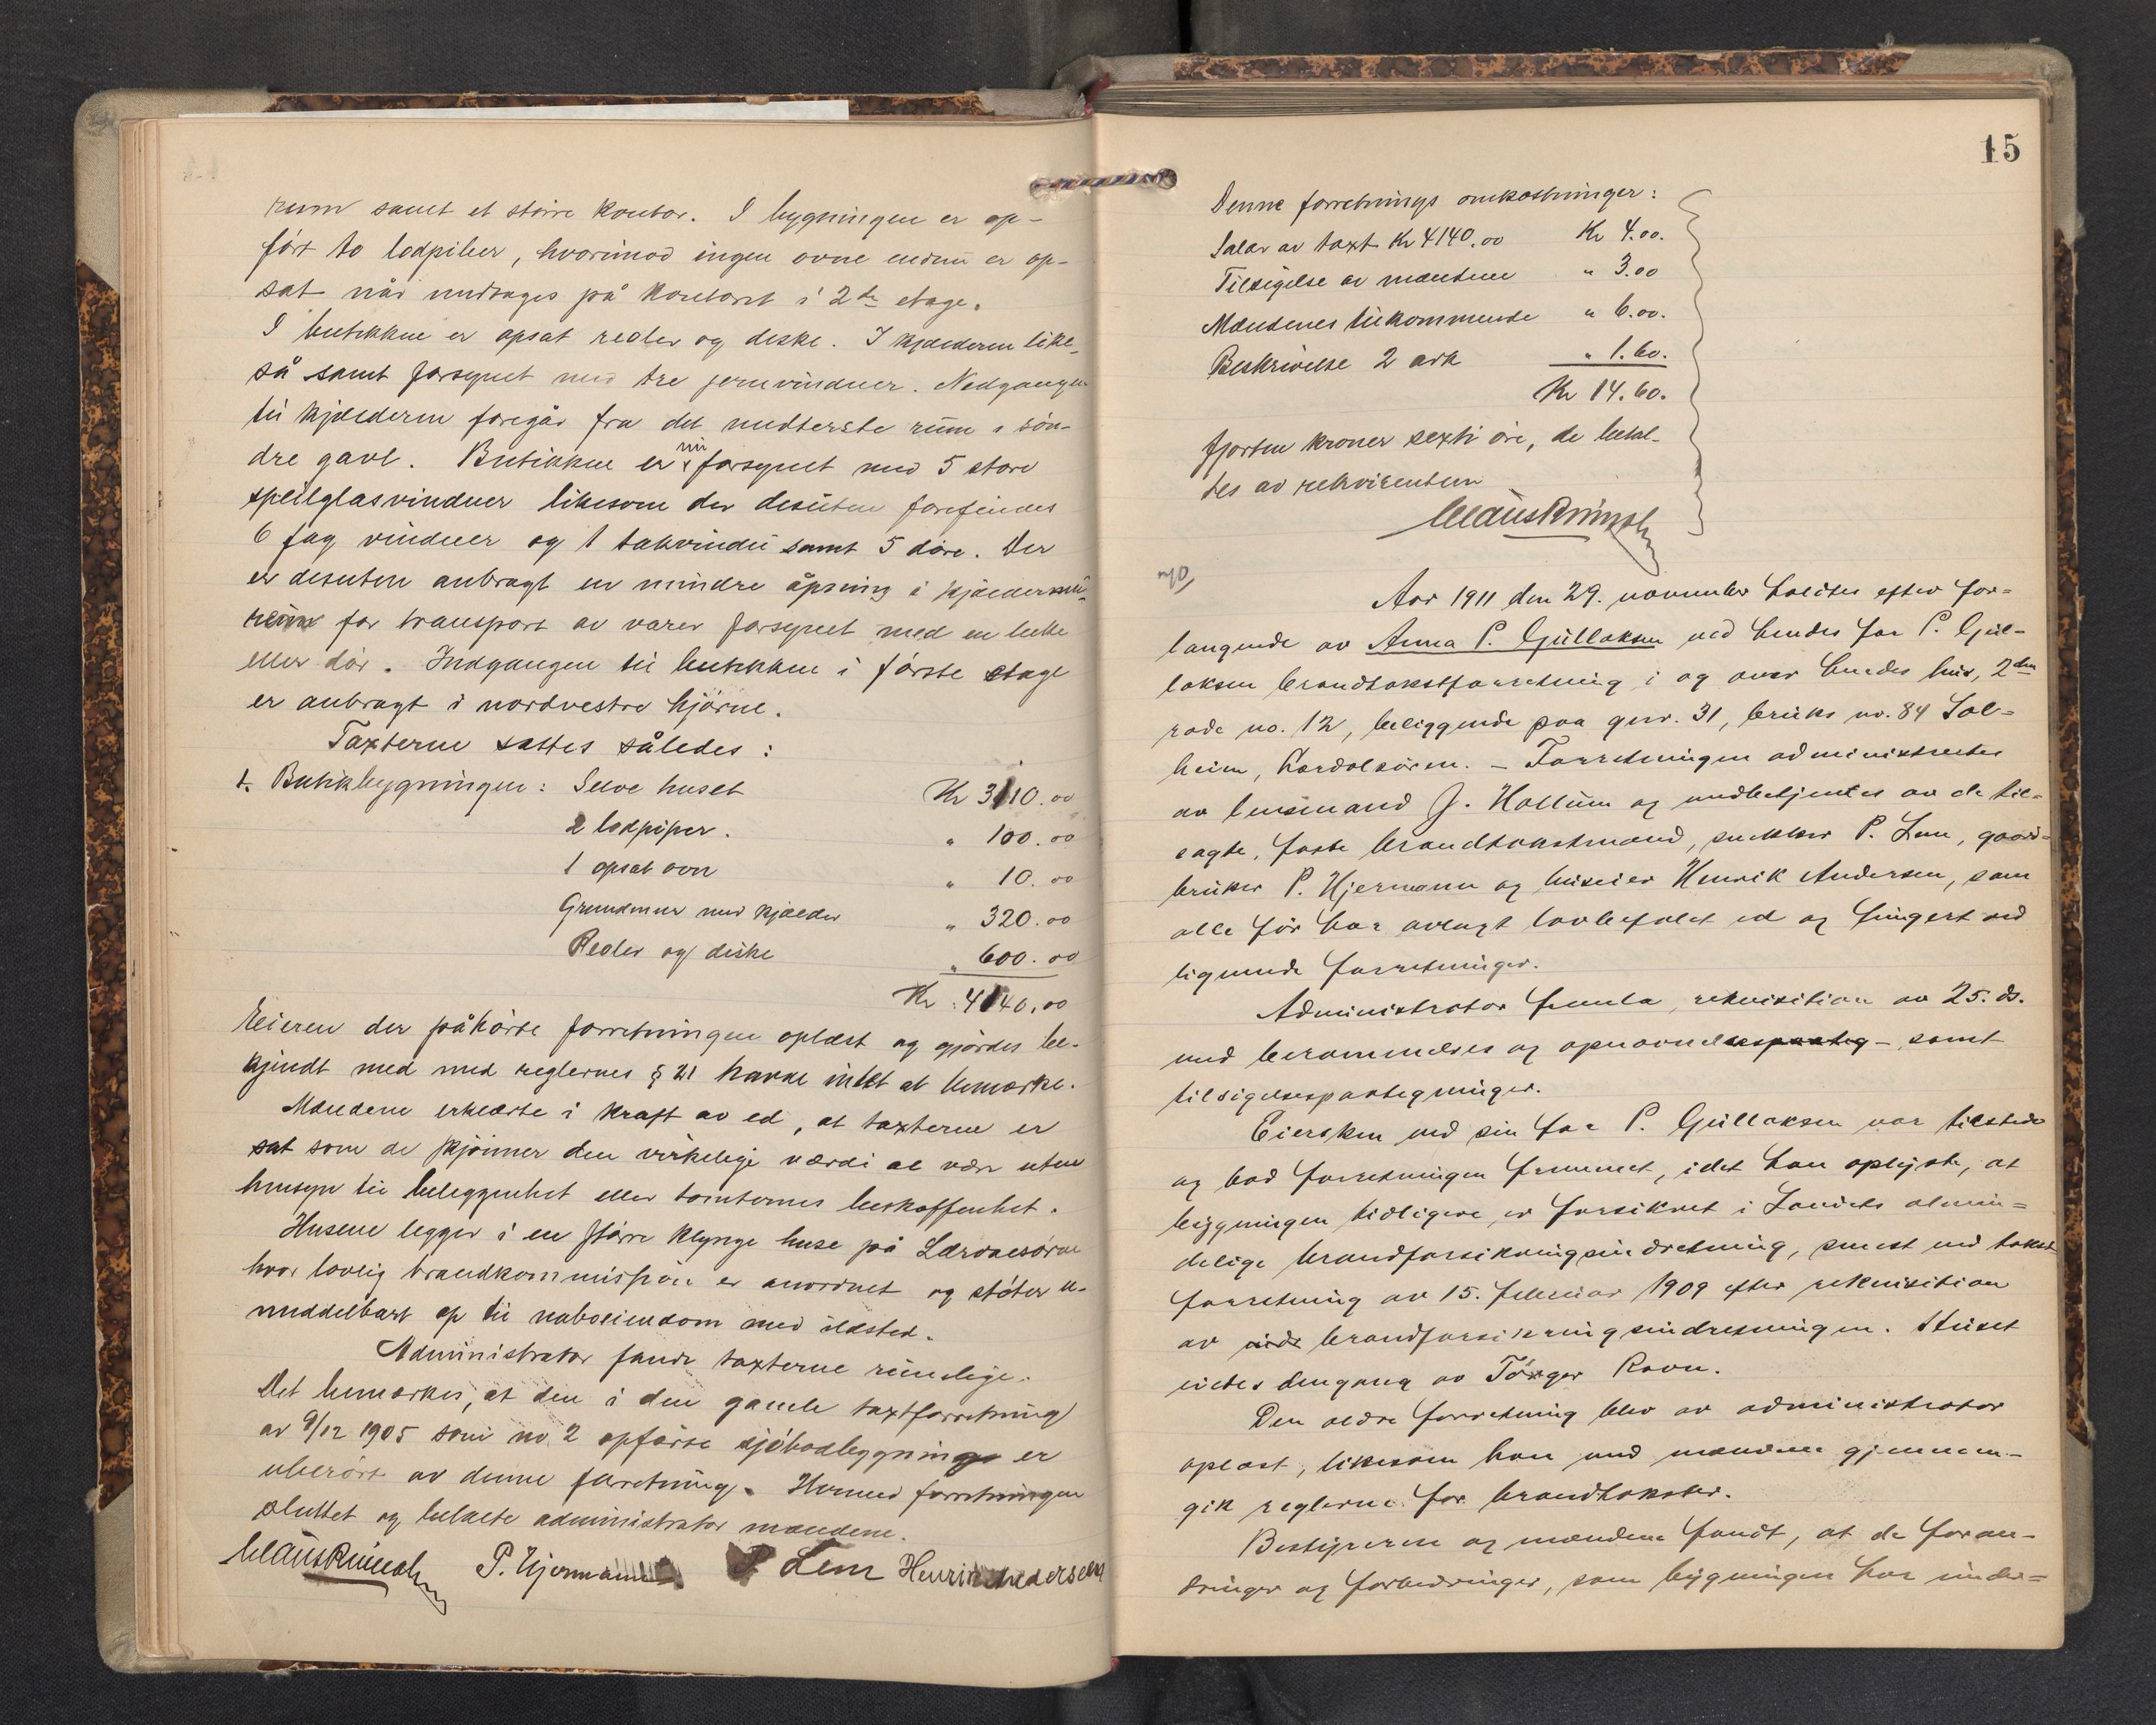 rum samt et större kontor. I bygningen er op-
fört to lodpiber, hvorimod ingen ovne endnu er op-
sat når undtages på kontoret i 2de etage.
I butikken er opsat reoler og diske. I kjælderen like-
så samt forsynet med tre jernvinduer. Nedgangen
til kjælderen foregår fra det midterste rum i søn-
dre gavl. Butikken er nu forsynet med 5 store
speilglasvinduer likesom der desuten forefindes
6 fag vinduer og 1 takvindu samt 5 döre. Der
er desuten anbragt en mindre åpning i kjældermu-
ren for transport av varer forsynet med en luke
eller dör. Indgangen til butikken i förste etage
er anbragt i nordvestre hjörne.
Taxterne sattes således:
1. Butikbygningen: Selve huset Kr 3110.00
2 lodpiper. " 100.00
1 opsat ovn " 10.00
Grundmur med kjælder " 320.00
Reoler og diske " 600.00
Kr. 4140.00
Eieren der påhörte forretningen oplæst og gjordes be-
kjendt med med reglernes § 21 havde intet at bemærke.
Mændene erklærte i kraft av ed, at taxterne er
sat som de skjönner den virkelige værdi at være uten
hensyn til beliggenhet eller tomternes beskaffenhet.
Husene ligger i en större klynge huse på Lærdalsören
hvor lovlig brandkommission er anordnet og stöter u-
middelbart op til naboeiendom med ildsted.
Administrator fandt taxterne rimelige.
Det bemærkes, at den i den gamle taxtforretning
av 9/12 1905 som no 2 opförte sjöbodbygning er
uberört av denne forretning. Hermed forretningen
sluttet og betalte administrator mændene.
P. Hjermann P. Lem Henrik Andersen
15
Denne forretnings omkostninger:
Salær av taxt Kr 4140.00 Kr 4.00.
Tilsigelse av mændene " 3.00
Mændenes tilkommende " 6.00.
Beskrivelse 2 ark " 1.60.
Kr 14.60.
fjorten kroner sexti öre, de betal-
tes av rekvirenten
Aar 1911 den 29. november holdtes efter for-
langende av Anna P. Gullaksen ved hendes far P. Gul-
laksen brandtakstforretning i og over hendes hus, 2den
rode no. 12, beliggende paa gnr. 31, bruks no. 84 Sol-
heim, Lærdalsören. - Forretningen administreredes
av lensmand J. Hallum og medbetjentes av de til-
sagte, faste brandtakstmænd, snekker P. Lem, gaard-
bruker P. Hjermann og huseier Henrik Andersen, som
alle för har avlagt lovbefalet ed og fungert ved
lignende forretninger.
Administrator fremla rekvisition av 25. ds.
med berammelses og opnævnelsespaateg- samt
tilsigelsespaategninger.
Eiersken ved sin far P. Gullaksen var tilstede
og bad forretningen fremmet, idet han oplyste, at
bygningen tidligere er forsikret i Landets almin-
delige brandforsikringsindretning, senest ved takst
forretning av 15. februar 1909 efter rekvisition
av brandforsikringsindretningen. Huset
eiedes dengang av Törger Ravn.
Den ældre forretning blev av administrator
oplæst, likesom han med mændene gjennem-
gik reglerne for brandtakster.
Bestyreren og mændene fandt, at de foran-
dringer og forbedringer, som bygningen har under-